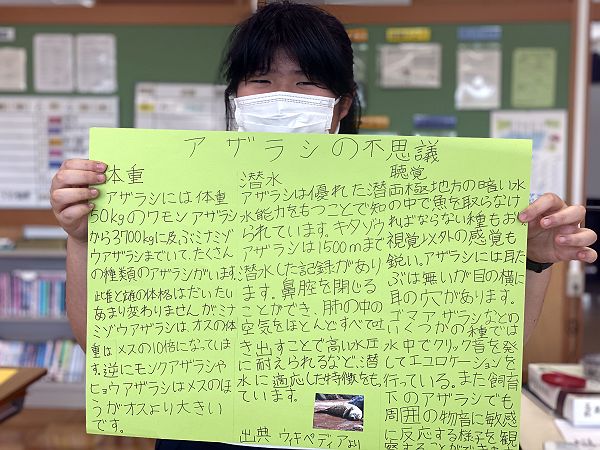 アザラシの不思議
体重
アザラシには体重
50kgのワモンアザラシ
から3700kgに及ぶミナミゾ
ウアザラシまでいて、たくさん
の種類のアザラシがいます。
雌と雄の体格はだいたい
あまり変わりませんがミナ
ミゾウアザラシはオスの体
重はメスの10倍になっていま
す。逆にモンクアザラシや
ヒョウアザラシはメスのほ
うがオスより大きい
です。
潜水
アザラシは優れた潜
水能力をもつことで知
られています。キタゾウ
アザラシは1500mまで
潜水した記録があり
ます。鼻腔を閉じる
ことができ、肺の中の
空気をほとんどすべて吐
き出すことで高い水圧
に耐えられるなど、潜
水に適応した特徴をも
ています。
出典 ウィキペディアより
聴覚
両極地方の暗い水
の中で魚を取らなけ
ればならない種もおり
視覚以外の感覚も
鋭い。アザラシには耳た
ぶは無いが目の横に
耳の穴があります。
ゴマアザラシなどの
いくつかの種では
水中でクリック音を発
してエコロケーションを
行っている。また飼育
下のアザラシでも
周囲の物音に敏感
に反応する様子を観